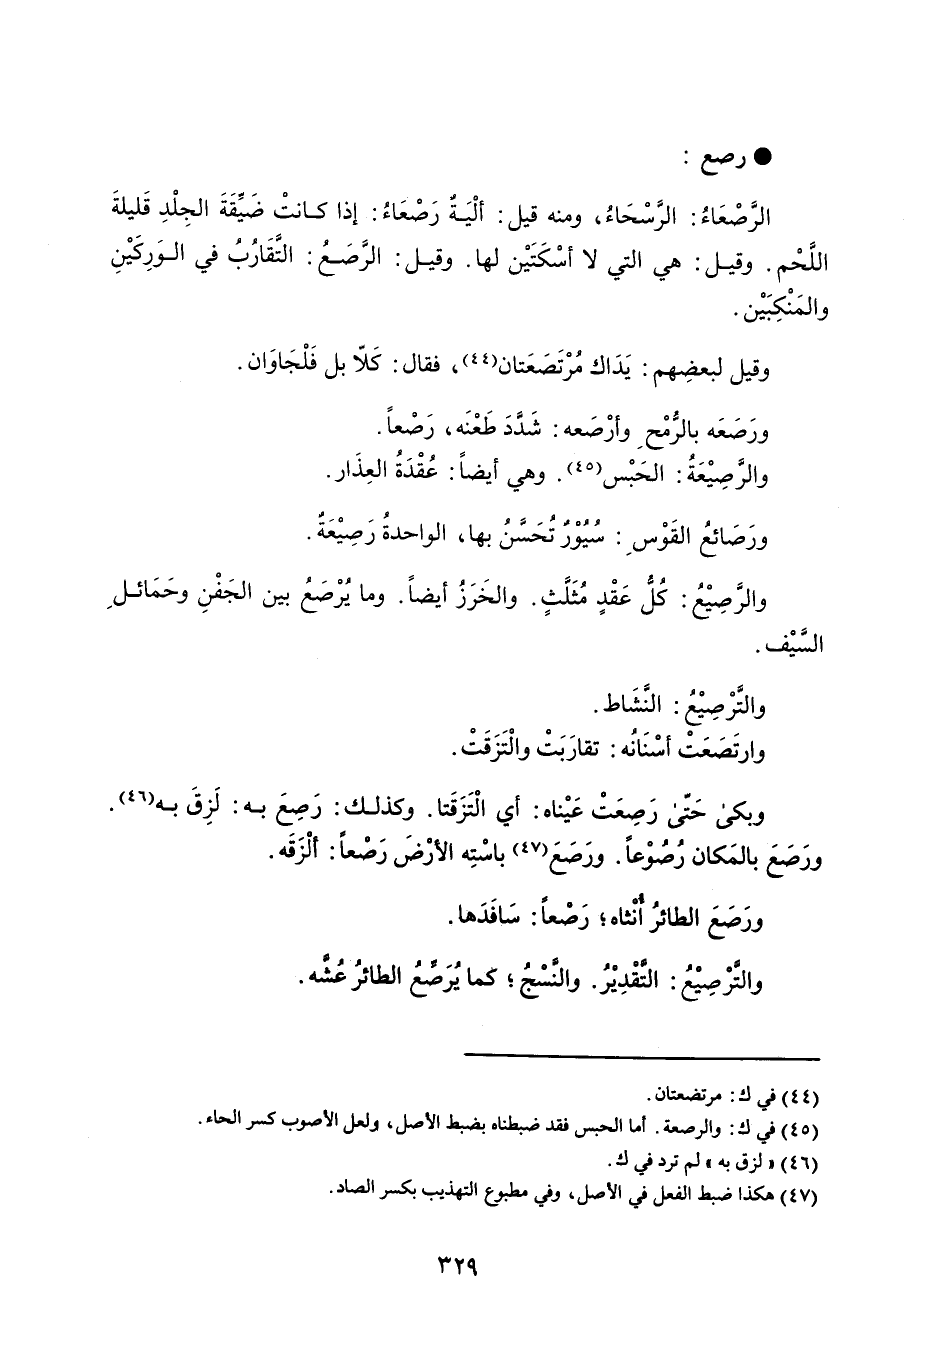 ● رصع :
الرَّصْعَاءُ : الرَّسْحَاءُ، ومنه قيل : ألْيَةٌ رَصْعَاءُ : إذا كـانتْ ضَيِّقَةَ الجِلْدِ قَليلةَ
اللَّحْم . وقيـل : هي التي لا أسْكَتَيْن لها . وقيـل : الرَّصَـعُ : التَّقَارُبُ في الـوَرِكَيْنِ
والمَنْكِبَيْن .
وقيل لبعضِهم : يَدَاك مُرْتَصَعَتان(٤٤)، فقال : كَلّا بل فَلْجَاوَان .
ورَصَعَه بالرُّمْحِ وأرْصَعه : شَدَّدَ طَعْنَه، رَصْعاً .
والرَّصِيْعَةُ : الحَبْس(٤٥) . وهي أيضاً : عُقْدَةُ العِذَار .
ورَصَائعُ القَوْسِ : سُيُوْرٌ تُحَسَّنُ بها، الواحدةُ رَصِيْعَةٌ .
والرَّصِيْعُ : كُلُّ عَقْدٍ مُثَلَّثٍ . والخَرَزُ أيضاً . وما يُرْصَعُ بين الجَفْنِ وحَمَائـلِ
السَّيْف .
والتَّرْصِيْعُ : النَّشَاط .
وارتَصَعَتْ أسْنَانُه : تقارَبَتْ والْتَزَقَتْ .
وبكىٰ حَتّىٰ رَصِعَتْ عَيْناه : أي الْتَزَقَتا . وكذلـك : رَصِعَ بـه : لَزِقَ بـه(٤٦) .
ورَصَعَ بالمَكان رُصُوْعاً . ورَصَعَ(٤٧) باسْتِه الأرْضَ رَصْعاً : ألْزَقَه .
ورَصَعَ الطائرُ أُنْثاه؛ رَصْعاً : سَافَدَها .
والتَّرْصِيْعُ : التَّقْدِيْرُ . والنَّسْجُ؛ كما يُرَصِّعُ الطائرُ عُشَّه .
(٤٤) في ك : مرتضعتان .
(٤٥) في ك : والرصعة . أما الحبس فقد ضبطناه بضبط الأصل، ولعل الأصوب كسر الحاء .
(٤٦) « لزق به » لم ترد في ك .
(٤٧) هكذا ضبط الفعل في الأصل، وفي مطبوع التهذيب بكسر الصاد .
٣٢٩